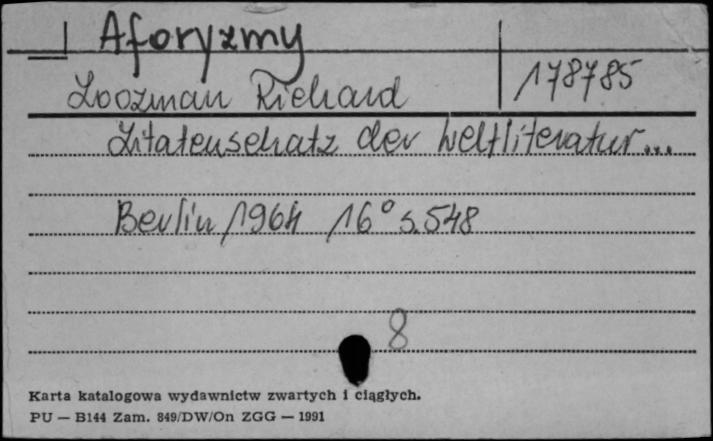 Aforyzmy
Zoozman Richard
178785
Zitatenschatz der Weltliteratur...
Berlin 1964 16° s.548
8
Karta katalogowa wydawnictw zwartych i ciągłych.
PU — B144 Zam. 849/DW/On ZGG — 1991